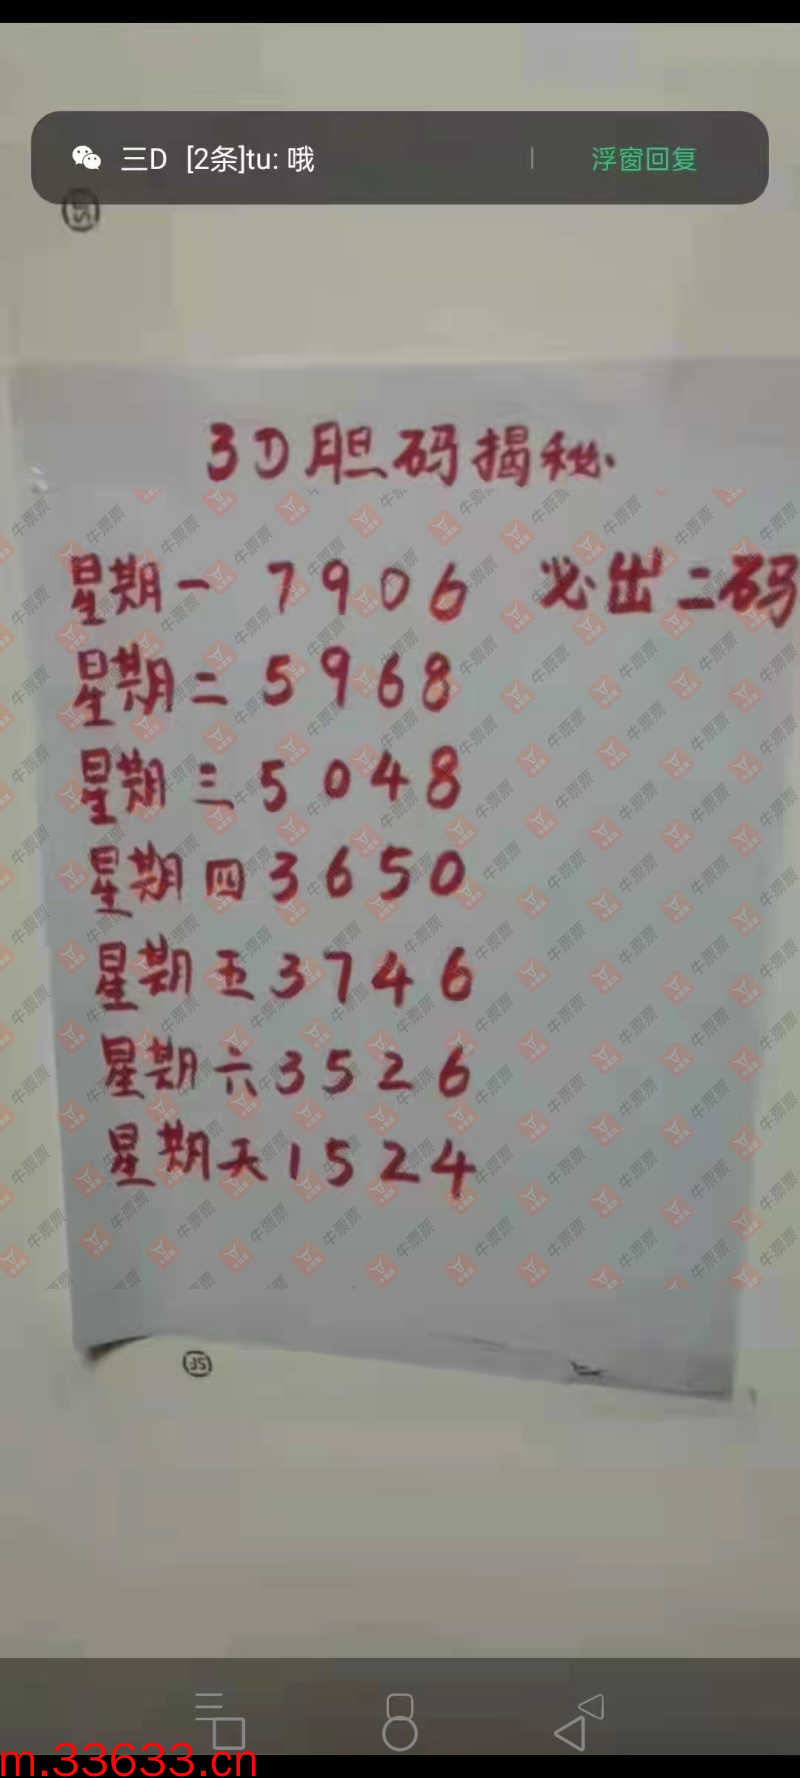 三D [2条]tu: 哦
浮窗回复
3D胆码揭秘
星期一 7906 必出二码
星期二 5968
星期三 5048
星期四 3650
星期五 3746
星期六 3526
星期天 1524
35
牛票票
m.33633.cn